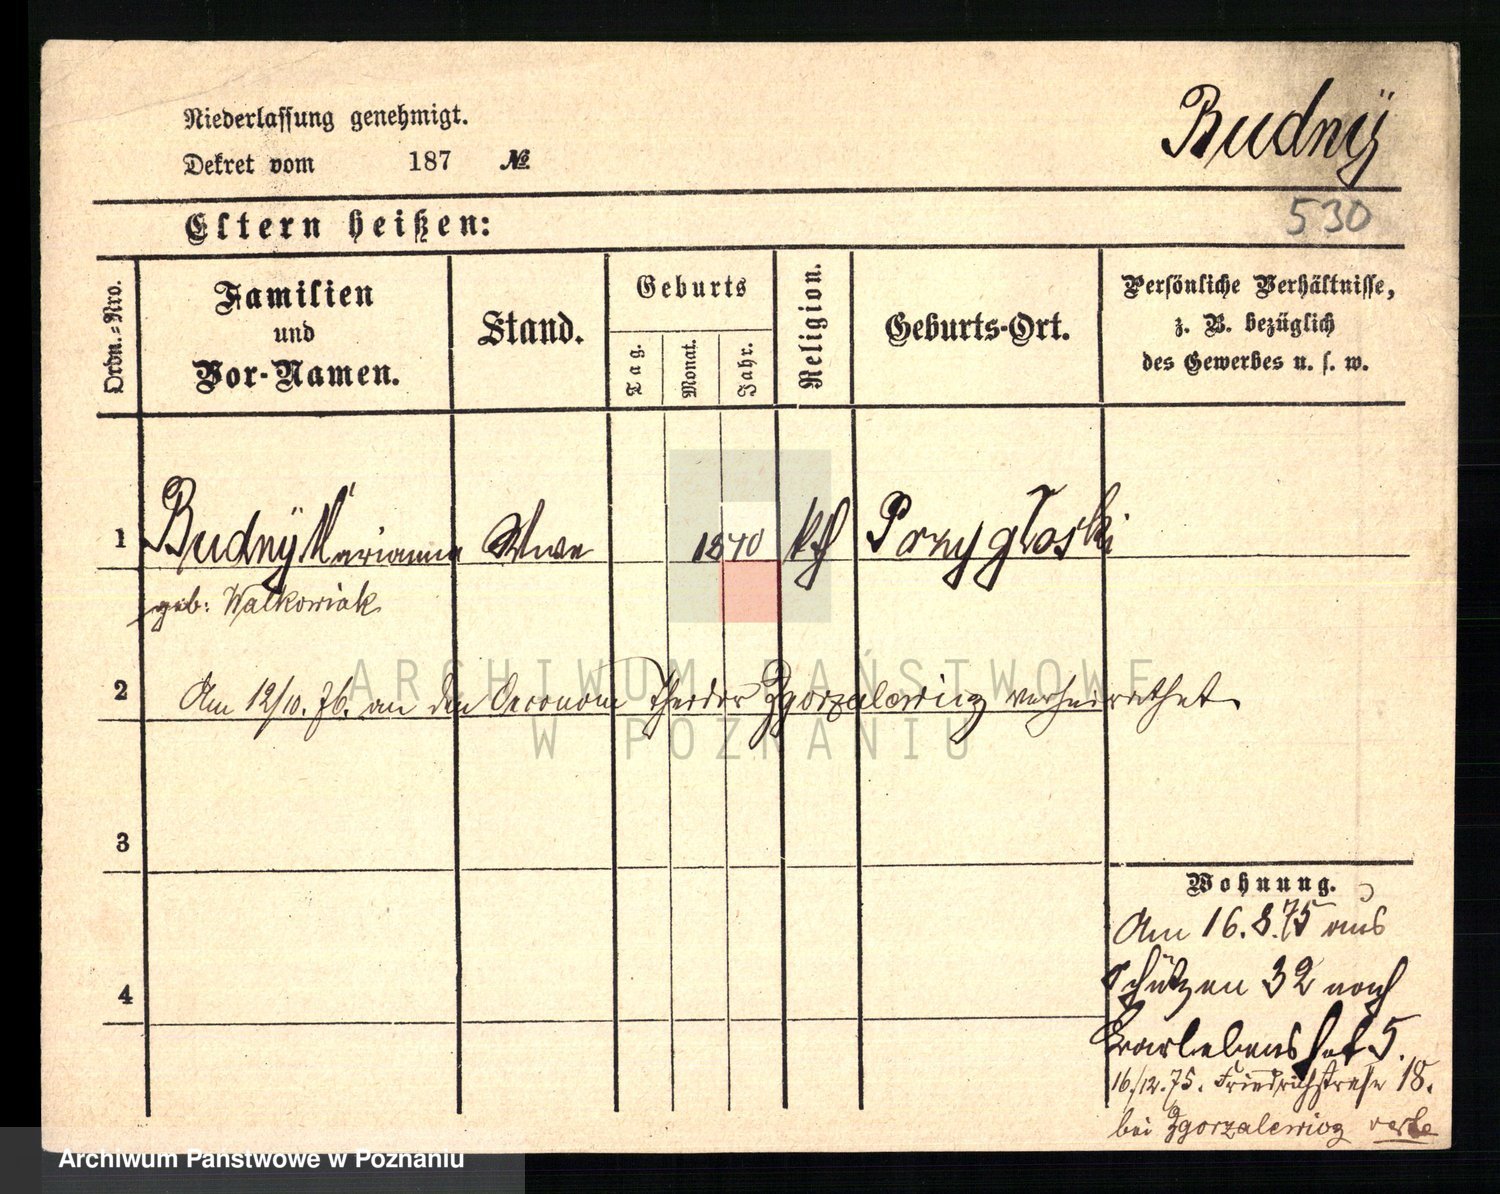 Niederlassung genehmigt.
Budnÿ
Dekret vom 187 №
530
Eltern heißen:
Ordn.-Nro.
Familien
und
Vor-Namen.
Stand.
Geburts
Tag.
Monat.
Jahr.
Religion.
Geburts-Ort.
Persönliche Verhältnisse,
z. B. bezüglich
des Gewerbes u. s. w.
1 Budnÿ Marianna Wwe 1840 kth
geb: Walkowiak
ARCHIWUM PAŃSTWOWE
W POZNANIU
2 Am 12/10. 76. an den Oeconom Theodor Zgorzalewicz verheirathet.
3
Wohnung.
Am 16.8.75 aus
Schützen 32 nach
4
5.
16/12.75. Friedrichstraße 18.
bei Zgorzalewicz
Archiwum Państwowe w Poznaniu